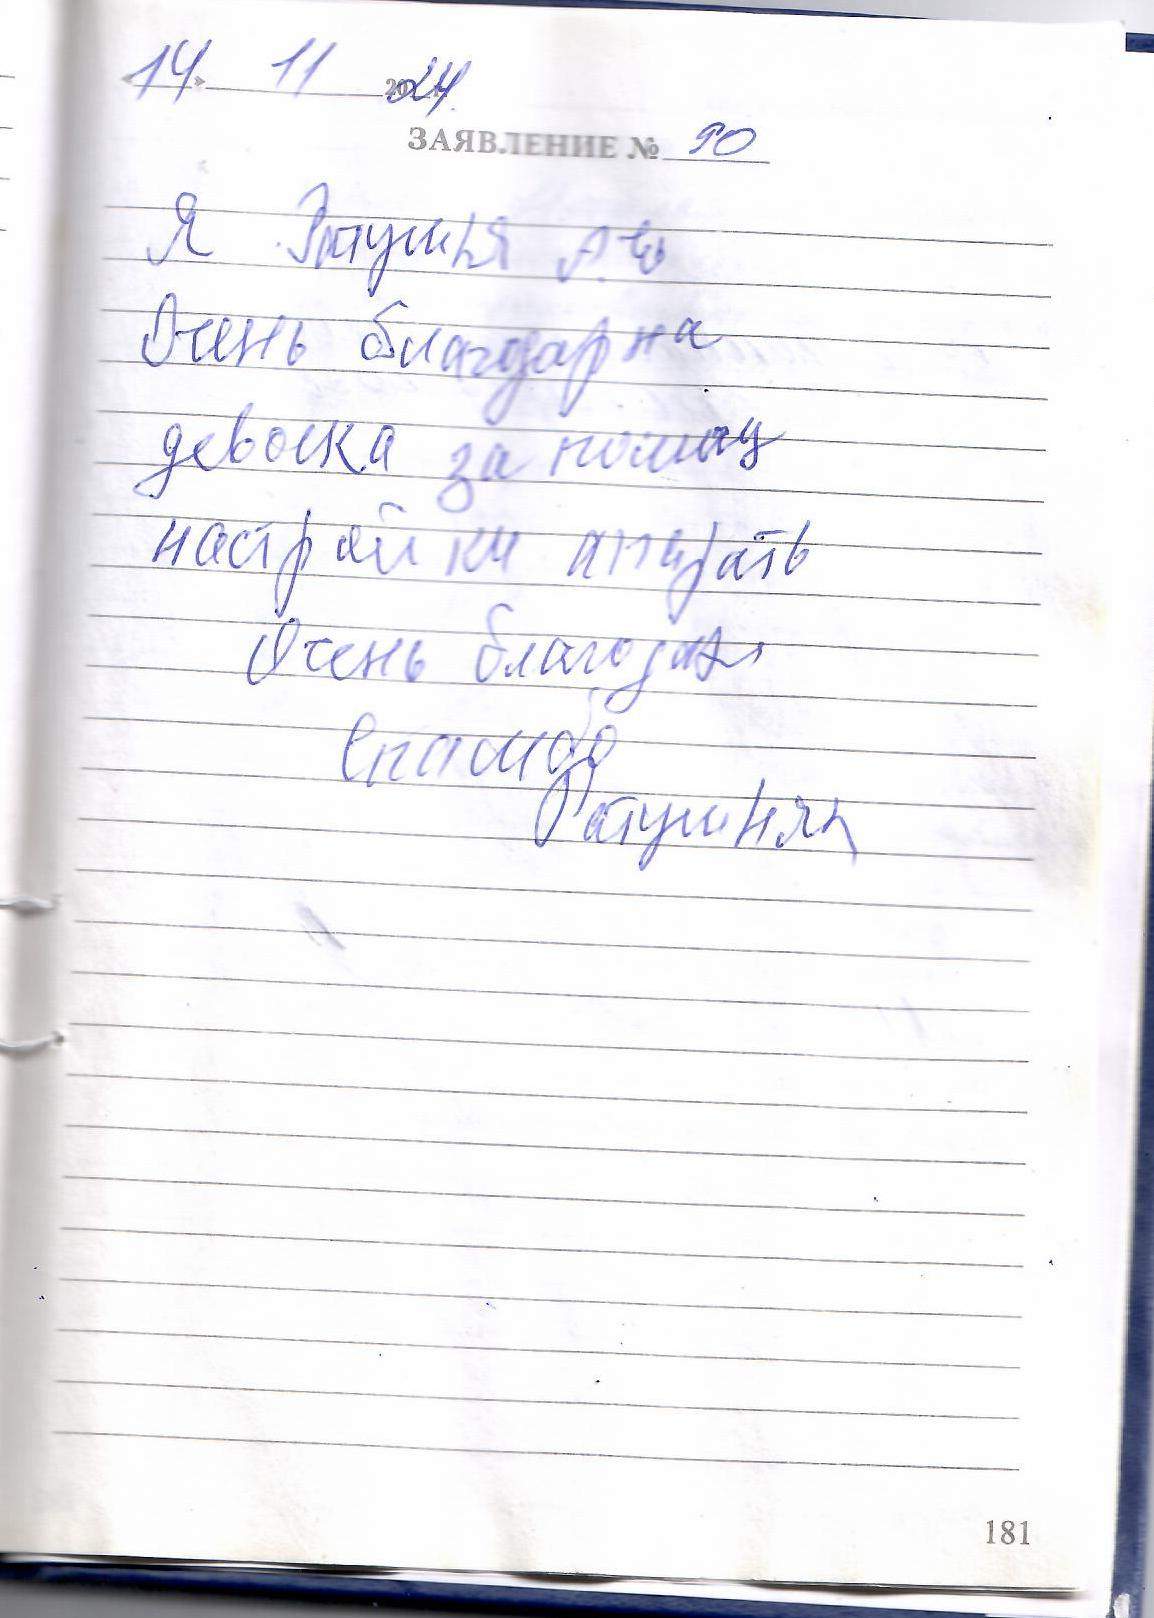 «14» 11 2024
ЗАЯВЛЕНИЕ № 90
Я Ратушня
Очень благодарна
девочка за помощ
настройки апарать
Очень благодар
Спасибо
Ратушняк
181